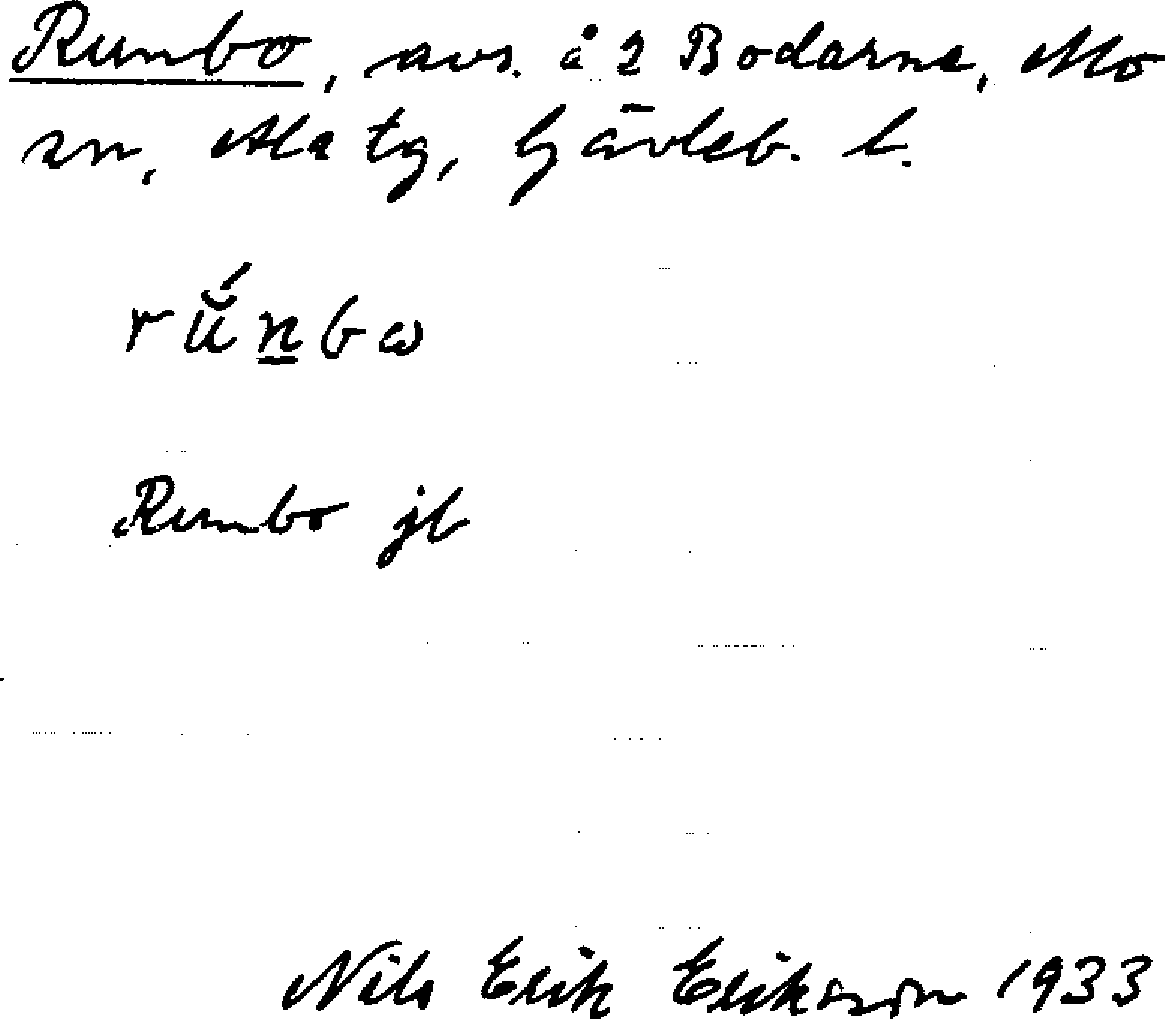 Runbo, avs. å 2 Bodarne, Mo
sn, Ala tg, Gävleb. l.
rŭ́n̲bω
Runbo jb
Nils Erik Erikson 1933